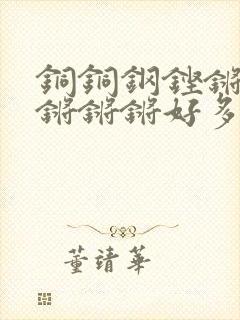 銅銅鋼鏗鏘
鏘鏘鏘好多
董靖華